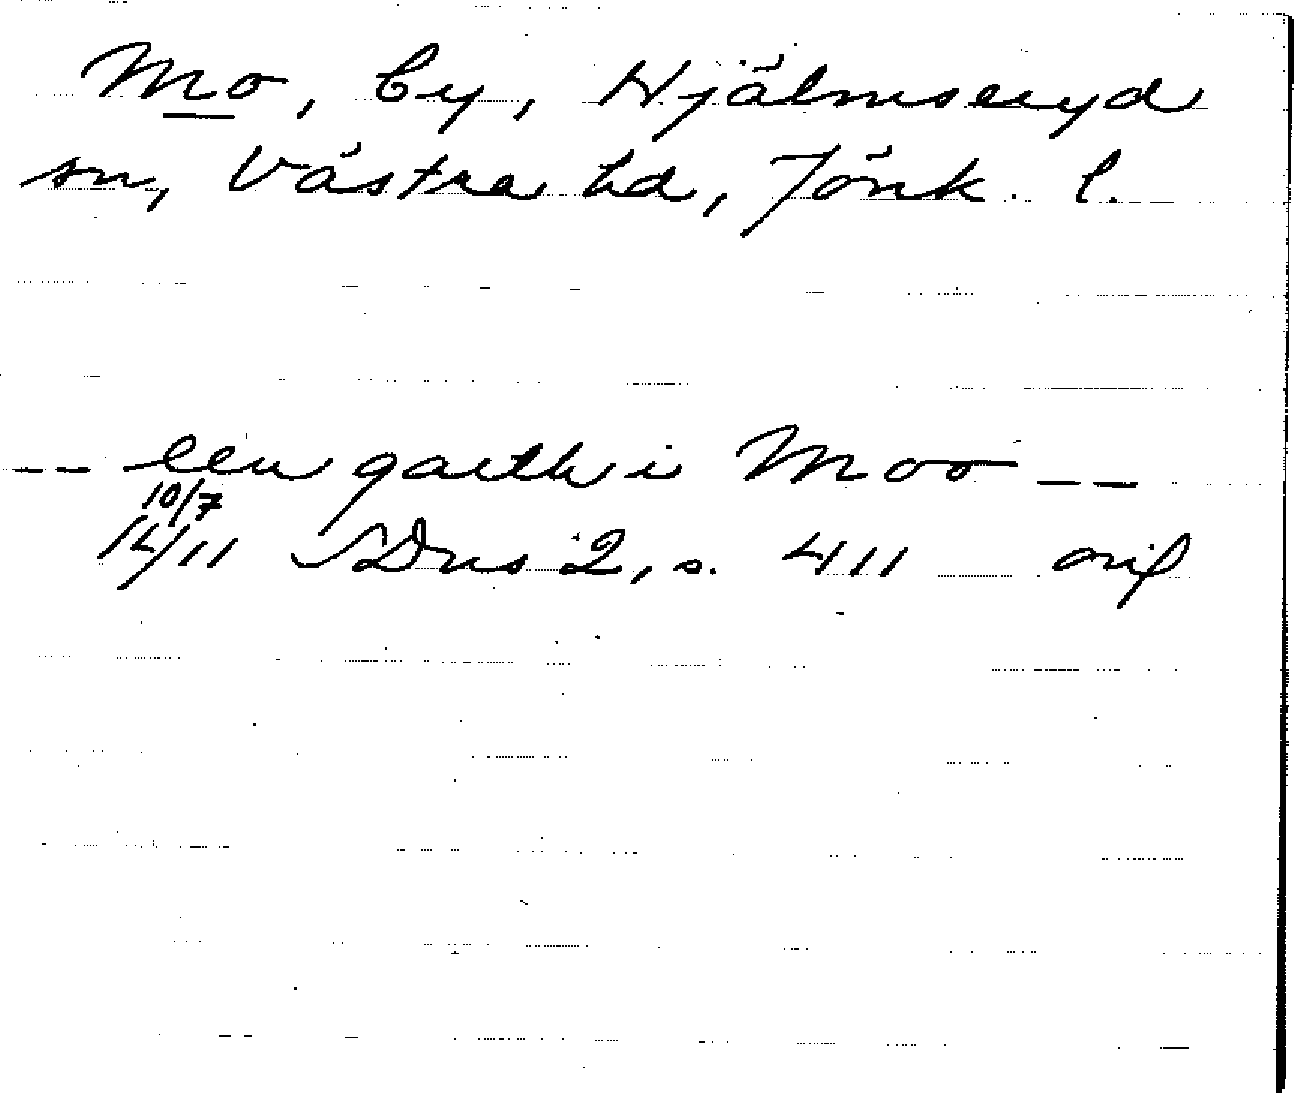 Mo, by, Hjälmseryd
sn, Västra hd, Jönk. l.
-- een garth i Moo --
10/7
14/11 SDns 2, s. 411 orig